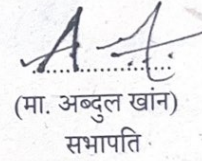 (मा. अब्दुल खांन)
सभापति